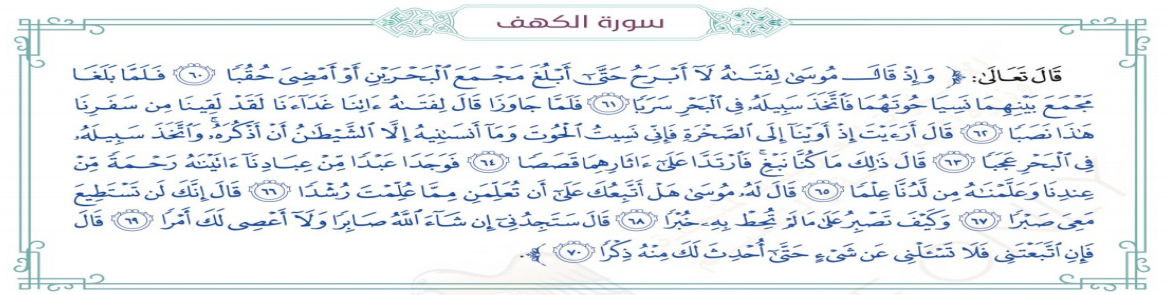 سورة الكهف
قَالَ تَعَالَىٰ: ﴿ وَإِذْ قَالَ مُوسَىٰ لِفَتَىٰهُ لَآ أَبْرَحُ حَتَّىٰٓ أَبْلُغَ مَجْمَعَ ٱلْبَحْرَيْنِ أَوْ أَمْضِىَ حُقُبًا ٦٠ فَلَمَّا بَلَغَا
مَجْمَعَ بَيْنِهِمَا نَسِيَا حُوتَهُمَا فَٱتَّخَذَ سَبِيلَهُۥ فِى ٱلْبَحْرِ سَرَبًا ٦١ فَلَمَّا جَاوَزَا قَالَ لِفَتَىٰهُ ءَاتِنَا غَدَآءَنَا لَقَدْ لَقِينَا مِن سَفَرِنَا
هَٰذَا نَصَبًا ٦٢ قَالَ أَرَءَيْتَ إِذْ أَوَيْنَآ إِلَى ٱلصَّخْرَةِ فَإِنِّى نَسِيتُ ٱلْحُوتَ وَمَآ أَنسَىٰنِيهُ إِلَّا ٱلشَّيْطَٰنُ أَنْ أَذْكُرَهُۥ وَٱتَّخَذَ سَبِيلَهُۥ
فِى ٱلْبَحْرِ عَجَبًا ٦٣ قَالَ ذَٰلِكَ مَا كُنَّا نَبْغِ ۚ فَٱرْتَدَّا عَلَىٰٓ ءَاثَارِهِمَا قَصَصًا ٦٤ فَوَجَدَا عَبْدًا مِّنْ عِبَادِنَآ ءَاتَيْنَٰهُ رَحْمَةً مِّنْ
عِندِنَا وَعَلَّمْنَٰهُ مِن لَّدُنَّا عِلْمًا ٦٥ قَالَ لَهُۥ مُوسَىٰ هَلْ أَتَّبِعُكَ عَلَىٰٓ أَن تُعَلِّمَنِ مِمَّا عُلِّمْتَ رُشْدًا ٦٦ قَالَ إِنَّكَ لَن تَسْتَطِيعَ
مَعِىَ صَبْرًا ٦٧ وَكَيْفَ تَصْبِرُ عَلَىٰ مَا لَمْ تُحِطْ بِهِۦ خُبْرًا ٦٨ قَالَ سَتَجِدُنِىٓ إِن شَآءَ ٱللَّهُ صَابِرًا وَلَآ أَعْصِى لَكَ أَمْرًا ٦٩ قَالَ
فَإِنِ ٱتَّبَعْتَنِى فَلَا تَسْـَٔلْنِى عَن شَىْءٍ حَتَّىٰٓ أُحْدِثَ لَكَ مِنْهُ ذِكْرًا ٧٠ ﴾.